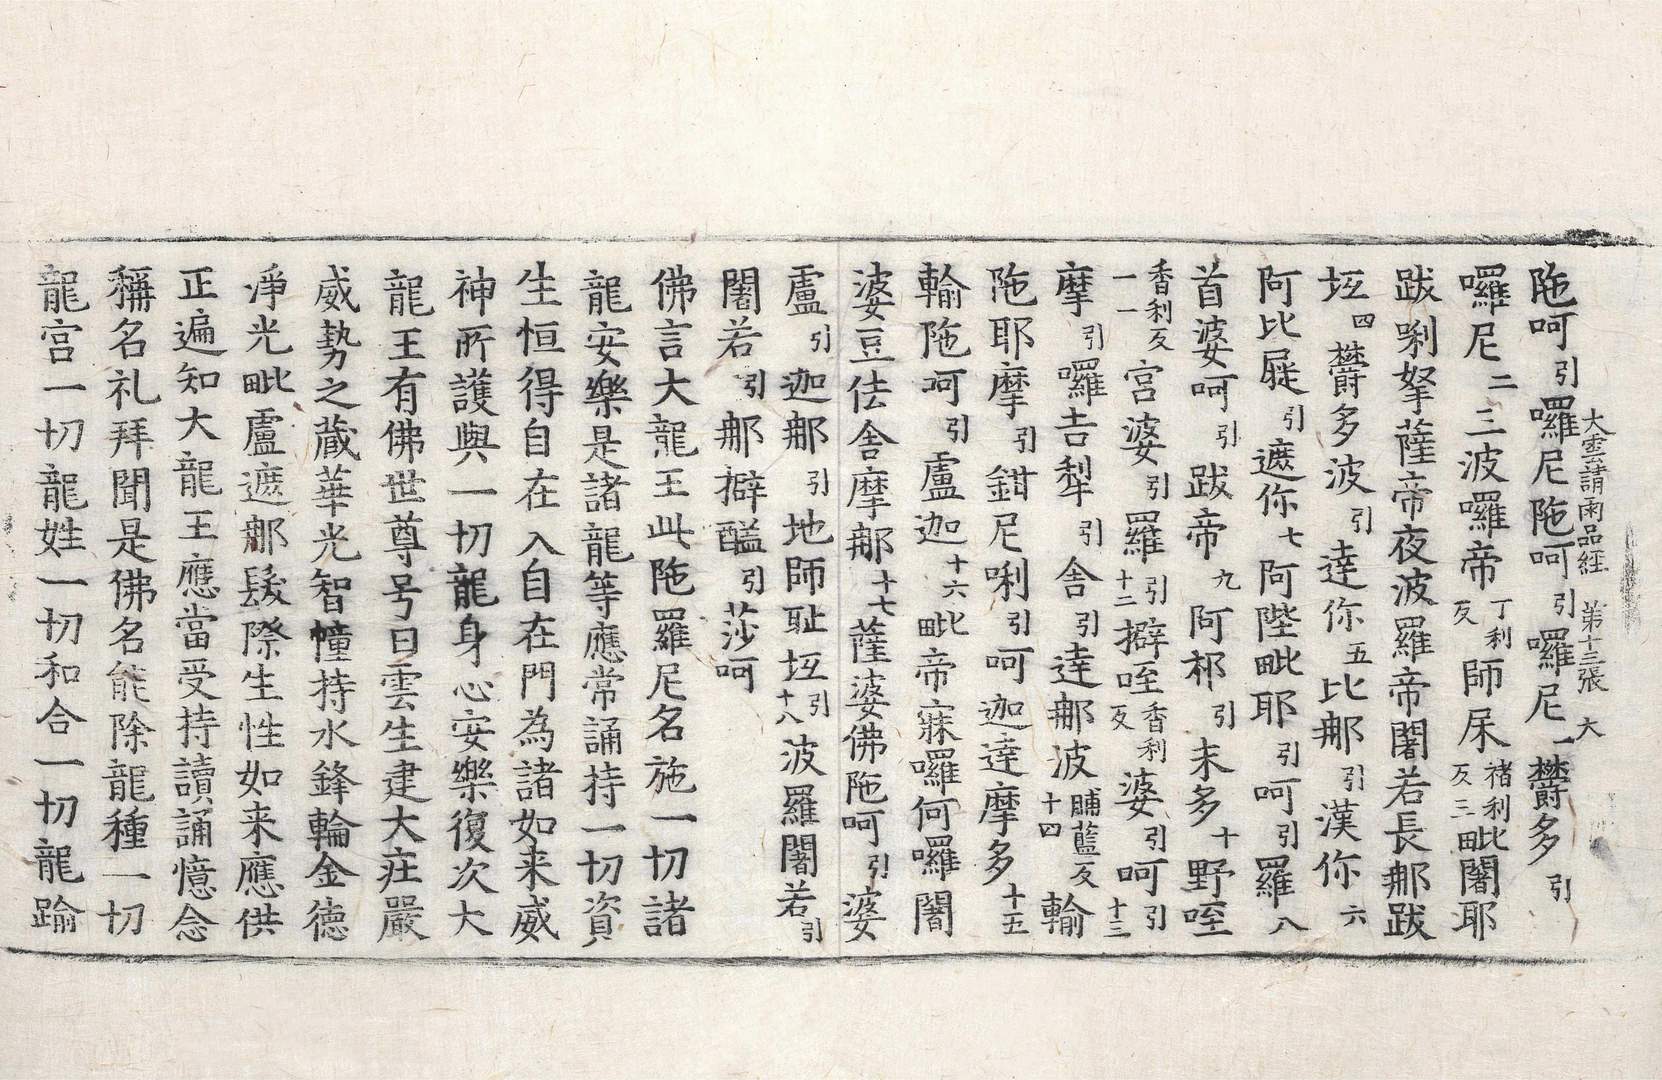 大雲請雨品經 第十三張 大
陁呵引囉尼陁呵引囉尼一欝多引
囉尼二三波囉帝丁利反師㞘褚利反三毗闍耶
跋唎拏薩帝夜波羅帝闍若長那跋
坘四欝多波引達你五比那引漢你六
阿比屣引遮你七阿陛毗耶引呵引羅八
首婆呵引跋帝九阿祁引未多十野咥
香利反一一宮婆引羅引十二擗咥香利反婆引呵引十三
摩引囉吉犁引舍引達那波晡藍反十四輸
陁耶摩引鉗尼唎引呵迦達摩多十五
輸陁呵引盧迦十六毗帝寐囉何囉闍
婆豆佉舍摩那十七薩婆佛陁呵引婆
盧引迦那引地師耻坘引十八波羅闍若引
闍若引那擗醯引莎呵
佛言大龍王此陁羅尼名施一切諸
龍安樂是諸龍等應常誦持一切資
生恒得自在入自在門為諸如来威
神所護與一切龍身心安樂復次大
龍王有佛世尊号曰雲生建大莊嚴
威勢之藏華光智幢持水鋒輪金德
淨光毗盧遮那髮際生性如来應供
正遍知大龍王應當受持讀誦憶念
稱名礼拜聞是佛名能除龍種一切
龍宮一切龍姓一切和合一切龍踰